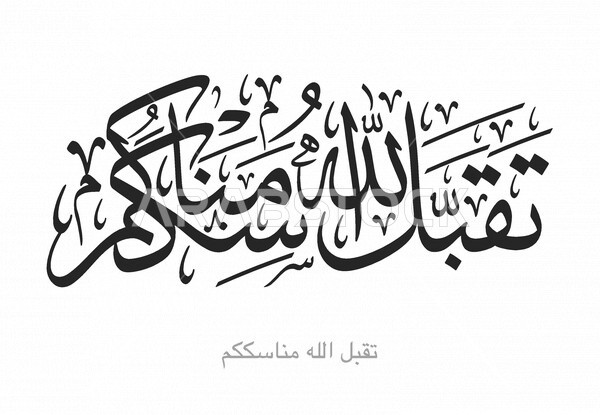 تقبل الله مناسككم
ARABSTOCK
تقبل الله مناسككم